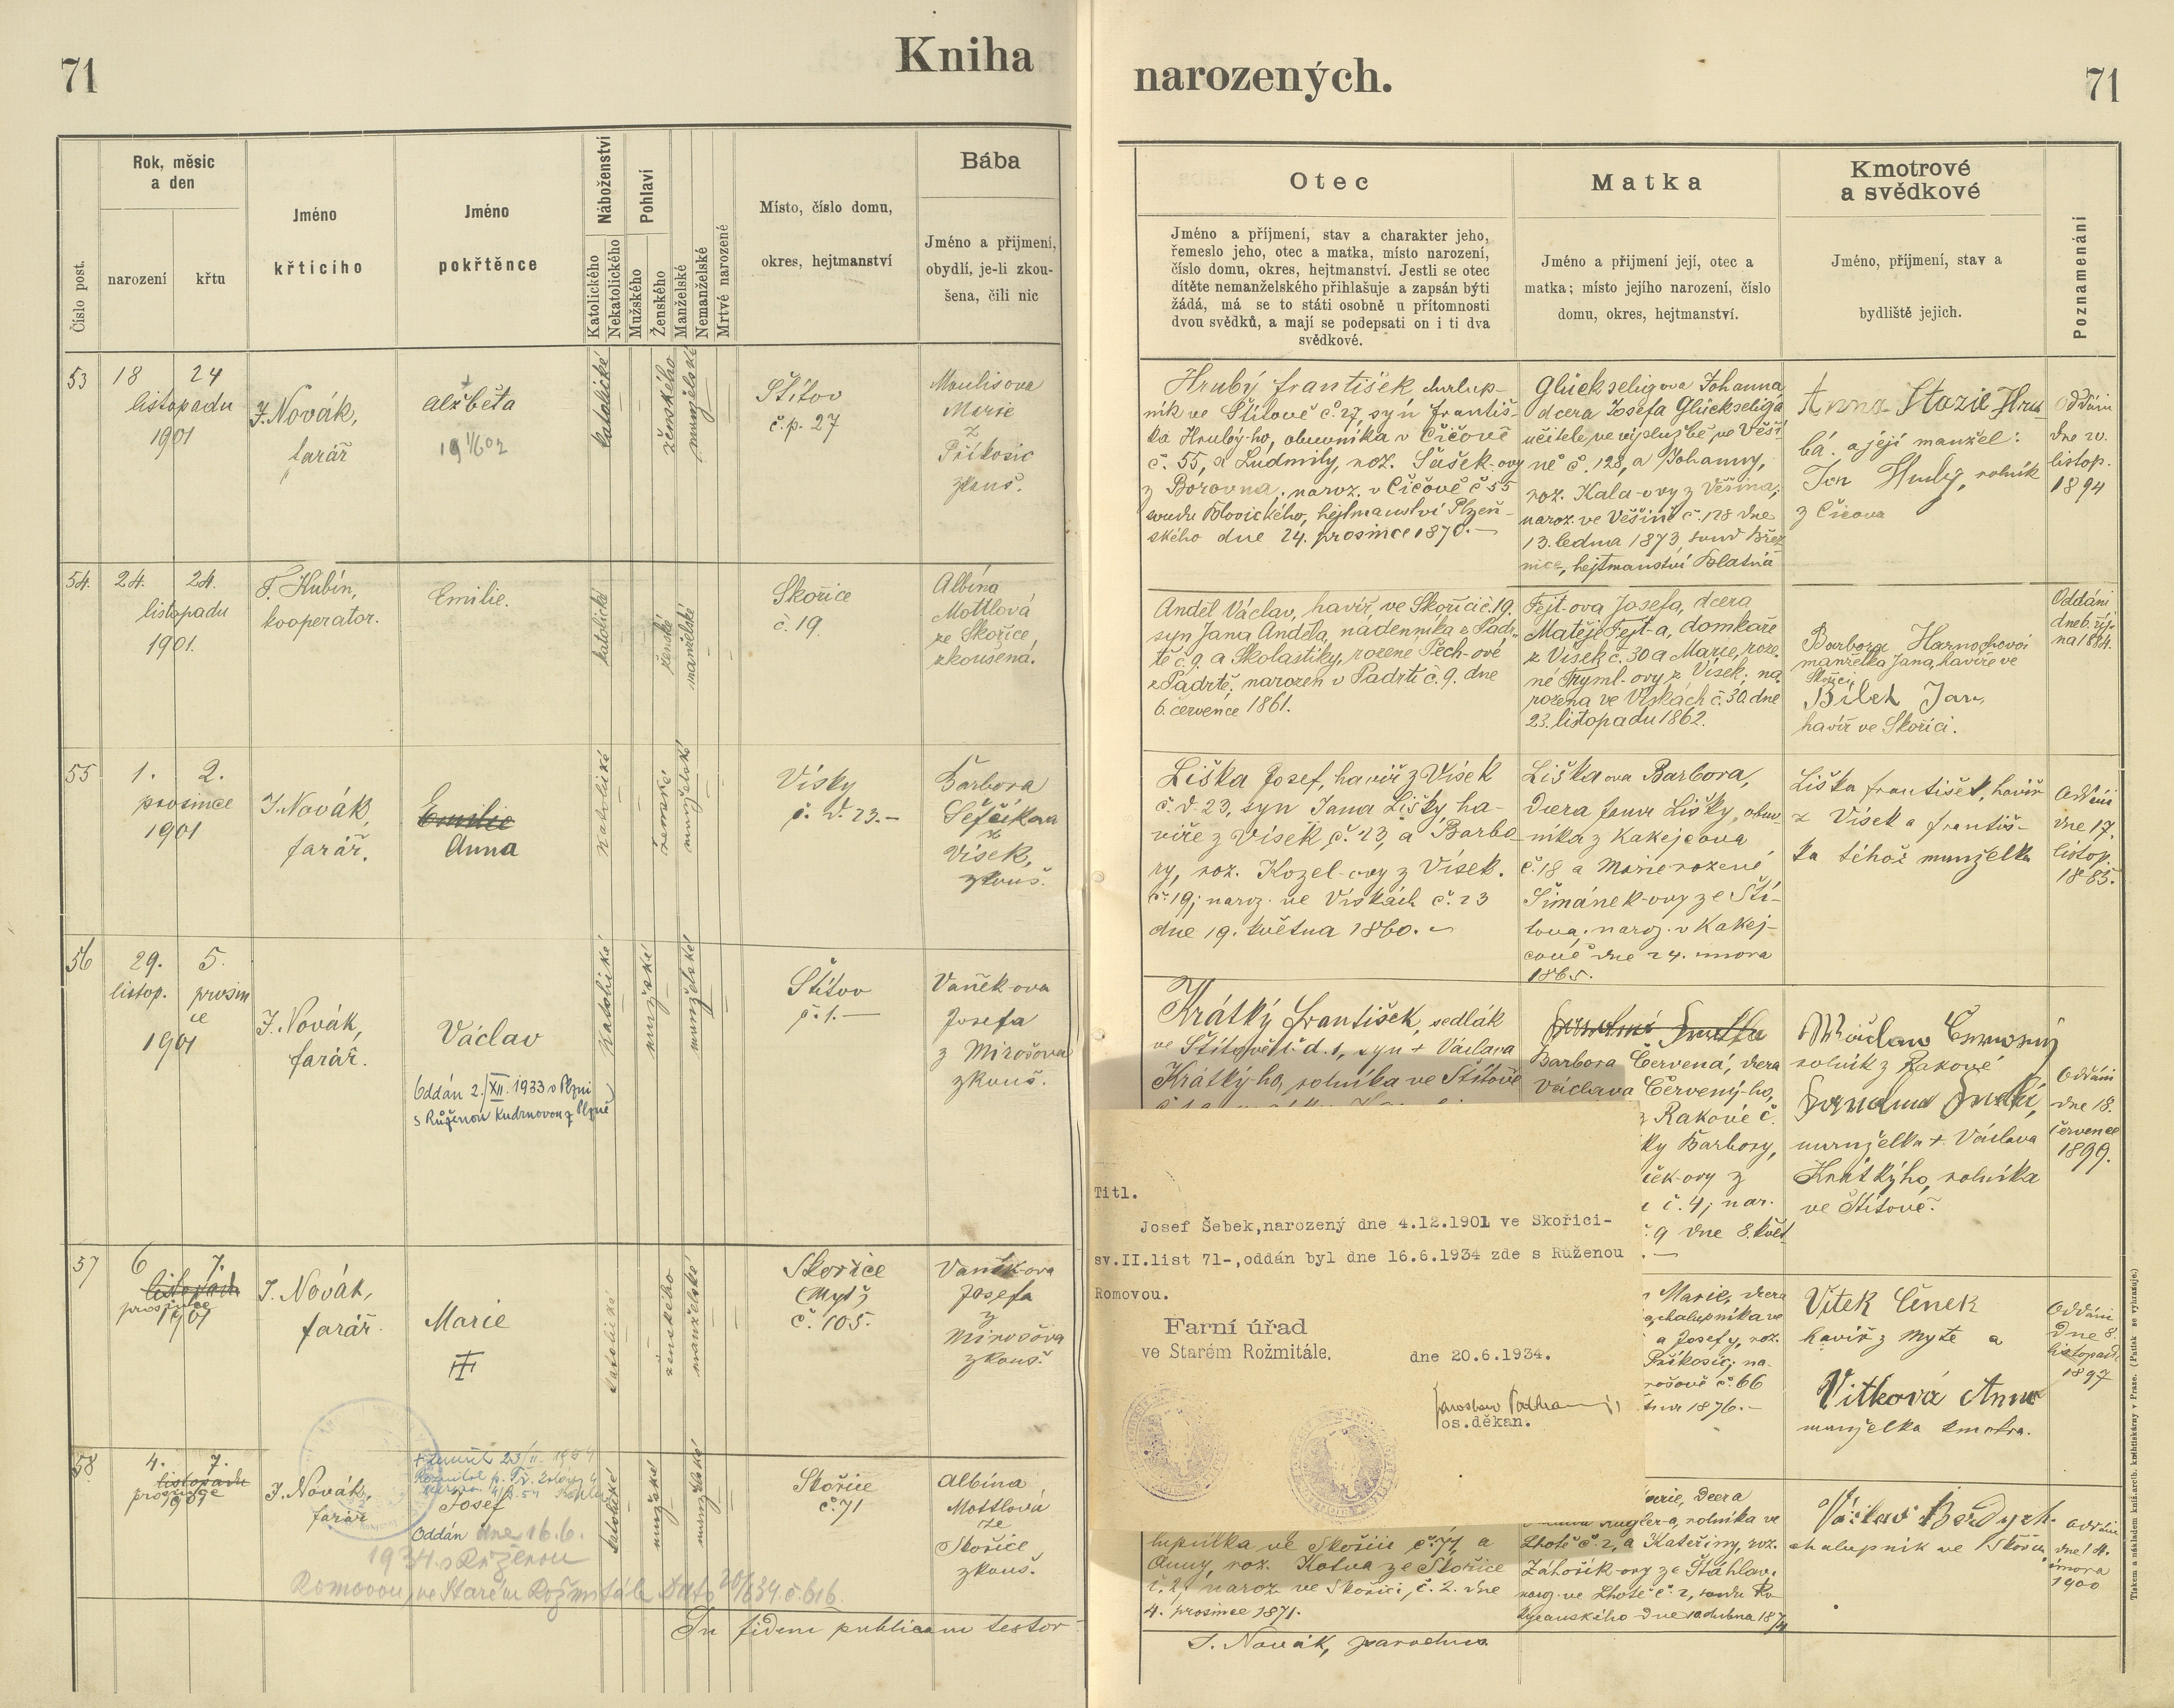 71
Kniha
narozených.
71
Číslo post.
Rok, měsíc
a den
narození
křtu
Jméno
křticího
Jméno
pokřtěnce
Náboženství
Katolického
Nekatolického
Pohlaví
Mužského
Ženského
Manželské
Nemanželské
Mrtvé narozené
Místo, číslo domu,
okres, hejtmanství
Bába
Jméno a přijmení,
obydlí, je-li zkou-
šena, čili nic
Otec
Jméno a příjmení, stav a charakter jeho,
řemeslo jeho, otec a matka, místo narození,
číslo domu, okres, hejtmanství. Jestli se otec
dítěte nemanželského přihlašuje a zapsán býti
žádá, má se to státi osobně u přítomnosti
dvou svědků, a mají se podepsati on i ti dva
svědkové.
Matka
Jméno a přijmení její, otec a
matka; místo jejího narození, číslo
domu, okres, hejtmanství.
Kmotrové
a svědkové
Jméno, příjmení, stav a
bydliště jejich.
Poznamenání
53
18 24
listopadu
1901
J. Novák,
farář
Alžběta
katolické
ženského
manželské
Štítov
č.p. 27
Maulisova
Marie
z
Příkosic
zkouš.
Hrubý František chalup-
ník ve Štítově č. 27, syn Františ-
ka Hrubý-ho, obuvníka v Čičově
č. 55, a Ludmily, roz. Sušek-ovy
z Borovna, naroz. v Čičově č 55
okresu Blovického, hejtmanství Plzeň-
ského dne 24. prosince 1870.—
Glückseligova Johanna
dcera Josefa Glückseliga
učitele ve výslužbě, ve Věší-
ně č. 128, a Johanny,
roz. Kala-ovy z Věšína;
naroz. ve Věšíně č. 128 dne
13. ledna 1873, soud Břez
nice, hejtmanství Blatná
Anna Stazie Hru-
bá. a její manžel:
Jan Hrubý, rolník
z Čičova
Oddáni
dne 20.
listop.
1894
54.
24. 24.
listopadu
1901.
F. Hubín,
kooperator.
Emilie.
katolické
ženské
manželské
Skořice
č. 19
Albína
Mottlová
ze Skořice,
zkoušená.
Anděl Václav, havíř ve Skořici č. 19.
syn Jana Anděla, nádenníka z Padr-
tě č. 9. a Skolastiky, rozené Pech-ové
z Padrtě; narozen v Padrti č. 9. dne
6. července 1861.
Fejt-ova Josefa, dcera
Matěje Fejt-a, domkáře
z Vísek č. 30 a Marie, roze
né Tryml-ovy z Vísek; na
rozena ve Vískách č. 30. dne
23. listopadu 1862.
Barbora Harnochová
manželka Jana, havíře ve
Skořici,
Bílek Jan,
havíř ve Skořici.
Oddáni
dne 6. říj-
na 1884.
55
1. 2.
prosince
1901
J. Novák,
farář.
Emilie
Anna
katolické
ženské
manželské
Vísky
č. d. 23.—
Barbora
Šefčíkova
z
Vísek,
zkouš.
Liška Josef, havíř z Vísek
č. d. 23, syn Jana Lišky ha-
víře z Vísek č. 23, a Barbo-
ry, roz. Kozel-ovy z Vísek.
č. 19; naroz. ve Vískách č. 23
dne 19. května 1860.
Liškaova Barbora,
dcera Jana Lišky, obuv-
níka z Kakejcova
č. 18 a Marie rozené
Šimánek-ovy ze Ští-
tova, naroz. v Kakej-
cově dne 24. února
1865.
Liška František, havíř
z Vísek a Františ-
ka téhož manželka
Oddáni
dne 17.
listop.
1885.
56
29. 5.
listop. prosin
ce
1901
J. Novák,
farář.
Václav
Oddán 2./XII. 1933 v Plzni
s Růženou Kudrnovou z Plzně
katolické
mužské
manželské
Štítov
č. 1.—
Vaněk-ova
Josefa
z Mirošova
zkouš.
Krátký František, sedlák
ve Štítově č. d. 1, syn + Václava
Krátký-ho, rolníka ve Štítově
Barbora Červená, dcera
Václava Červený-ho,
z Rakové č.
ky Barbory,
č. 4; nar.
9 dne 8. květ
Václav Červený
rolník z Rakové
manželka + Václava
Krátkýho, rolníka
ve Štítově.
Oddáni
dne 18.
července
1899.
57
6 7.
listopadu
prosince
1901
J. Novák,
farář.
Marie
III
katolické
ženského
manželské
Skořice
(Myť)
č. 105.
Vaňkova
Josefa
z
Mirošova
zkouš.
Marie, dcera
chalupníka ve
a Josefy, roz.
Příkosic; na-
rošově č. 66
1876.—
Vítek Čeněk
havíř z Mytě a
Vítková Anna
manželka kmotra.
Oddáni
dne 8.
listopadu
1897
Titl.
Josef Šebek,narozený dne 4.12.1901 ve Skořici-
sv.II.list 71-,oddán byl dne 16.6.1934 zde s Růženou
Romovou.
Farní úřad
ve Starém Rožmitále,
dne 20.6.1934.
os.děkan.
58
4. 7.
listopadu
prosince
1901
J. Novák,
farář
Josef
Oddán dne 16.6.
1934 s Růženou
Romovou, ve Starém Rožmitále Dato 20/6 34. č. 616.
katolické
mužské
manželské
Skořice
č. 71
Albína
Mottlová
ze
Skořice,
zkouš.
lupníka ve Skořici č. 71, a
Anny, roz. Kotva ze Skořice
č. 2, naroz. ve Skořici, č. 2. dne
4. prosince 1871.
Marie, dcera
Kugler-a, rolníka ve
Lhotě č. 2, a Kateřiny, roz.
Záhořík-ovy ze Šťáhlav.
naroz. ve Lhotě č. 2, soudu Ro-
kycanského dne 10. dubna 1874
Václav Berdych
chalupník ve Skořici
Oddáni
dne 14.
února
1900
In fidem publicam testor
J. Novák, parochus
Tiskem a nákladem kníž. arcib. knihtiskárny v Praze. (Patisk se vyhrazuje.)